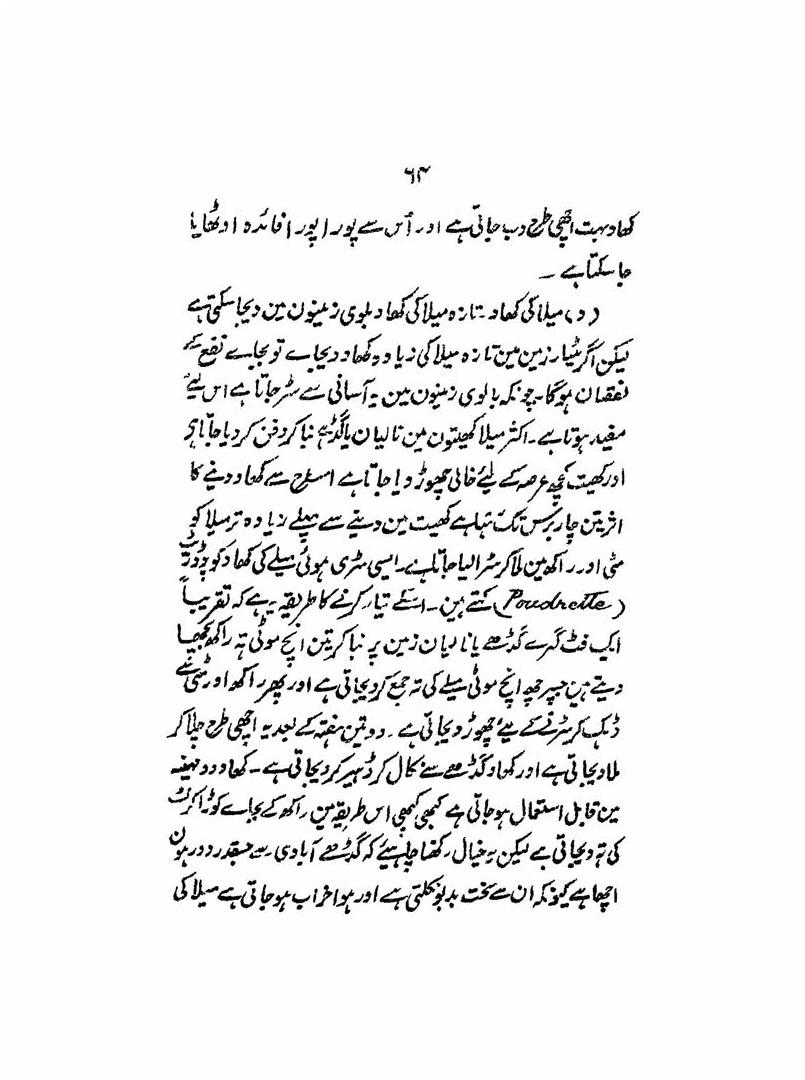 ۶۴
کھاد بہت اچھی طرح دب جاتی ہے اور اُس سے پورا پورا فائدہ اوٹھایا
جا سکتا ہے ۔
(د) میلا کی کھاد ۔ تازہ میلا کی کھاد بلوی زمینون مین دیجا سکتی ہے
لیکن اگر مٹیار زمین مین تازہ میلا کی زیادہ کھاد دیجاے تو بجاے نفع کے
نقصان ہوگا ۔ چونکہ بالوی زمینون مین یہ آسانی سے سڑ جاتا ہے اس لیے
مفید ہوتا ہے ۔ اکثر میلا کھیتون مین نالیان یا گڈہے بنا کر دفن کر دیا جاتا ہے
اور کھیت کچھ عرصہ کے لیے خالی چھوڑ دیا جاتا ہے اسطرح سے کھاد دینے کا
اثر تین چار برس تک رہتا ہے کھیت مین دینے سے پہلے زیادہ تر میلا کو
مٹی اور راکھ مین ملا کر سڑا لیا جاتا ہے ۔ ایسی سڑی ہوئی میلے کی کھاد کو پوڈرٹ
(Poudrette) کہتے ہین ۔ اسکے تیار کرنے کا طریقہ یہ ہے کہ تقریباً
ایک فٹ گہرے گڈھے یا نالیان زمین پر بنا کر تین انچ موٹی تہ راکھ کی بچھا
دیتے ہین جسپر چھ انچ موٹی میلے کی تہ جمع کر دیجاتی ہے اور پھر راکھ اور مٹی سے
ڈہک کر سڑنے کے لیے چھوڑ دیجاتی ہے ۔ دو تین ہفتہ کے بعد یہ اچھی طرح چلا کر
ملا دیجاتی ہے اور کھاد گڈھے سے نکال کر ڈہیر کر دیجاتی ہے ۔ کھاد دو مہینہ
مین قابل استعمال ہو جاتی ہے کبھی کبھی اس طریقہ مین راکھ کے بجاے کوڑا کرکٹ
کی تہ دیجاتی ہے لیکن یہ خیال رکھنا چاہیئے کہ گڈھے آبادی سے جسقدر دور ہون
اچھا ہے کیونکہ ان سے سخت بدبو نکلتی ہے اور ہوا خراب ہو جاتی ہے میلا کی